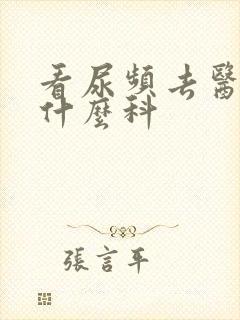 看尿頻去醫
什麼科
張言平